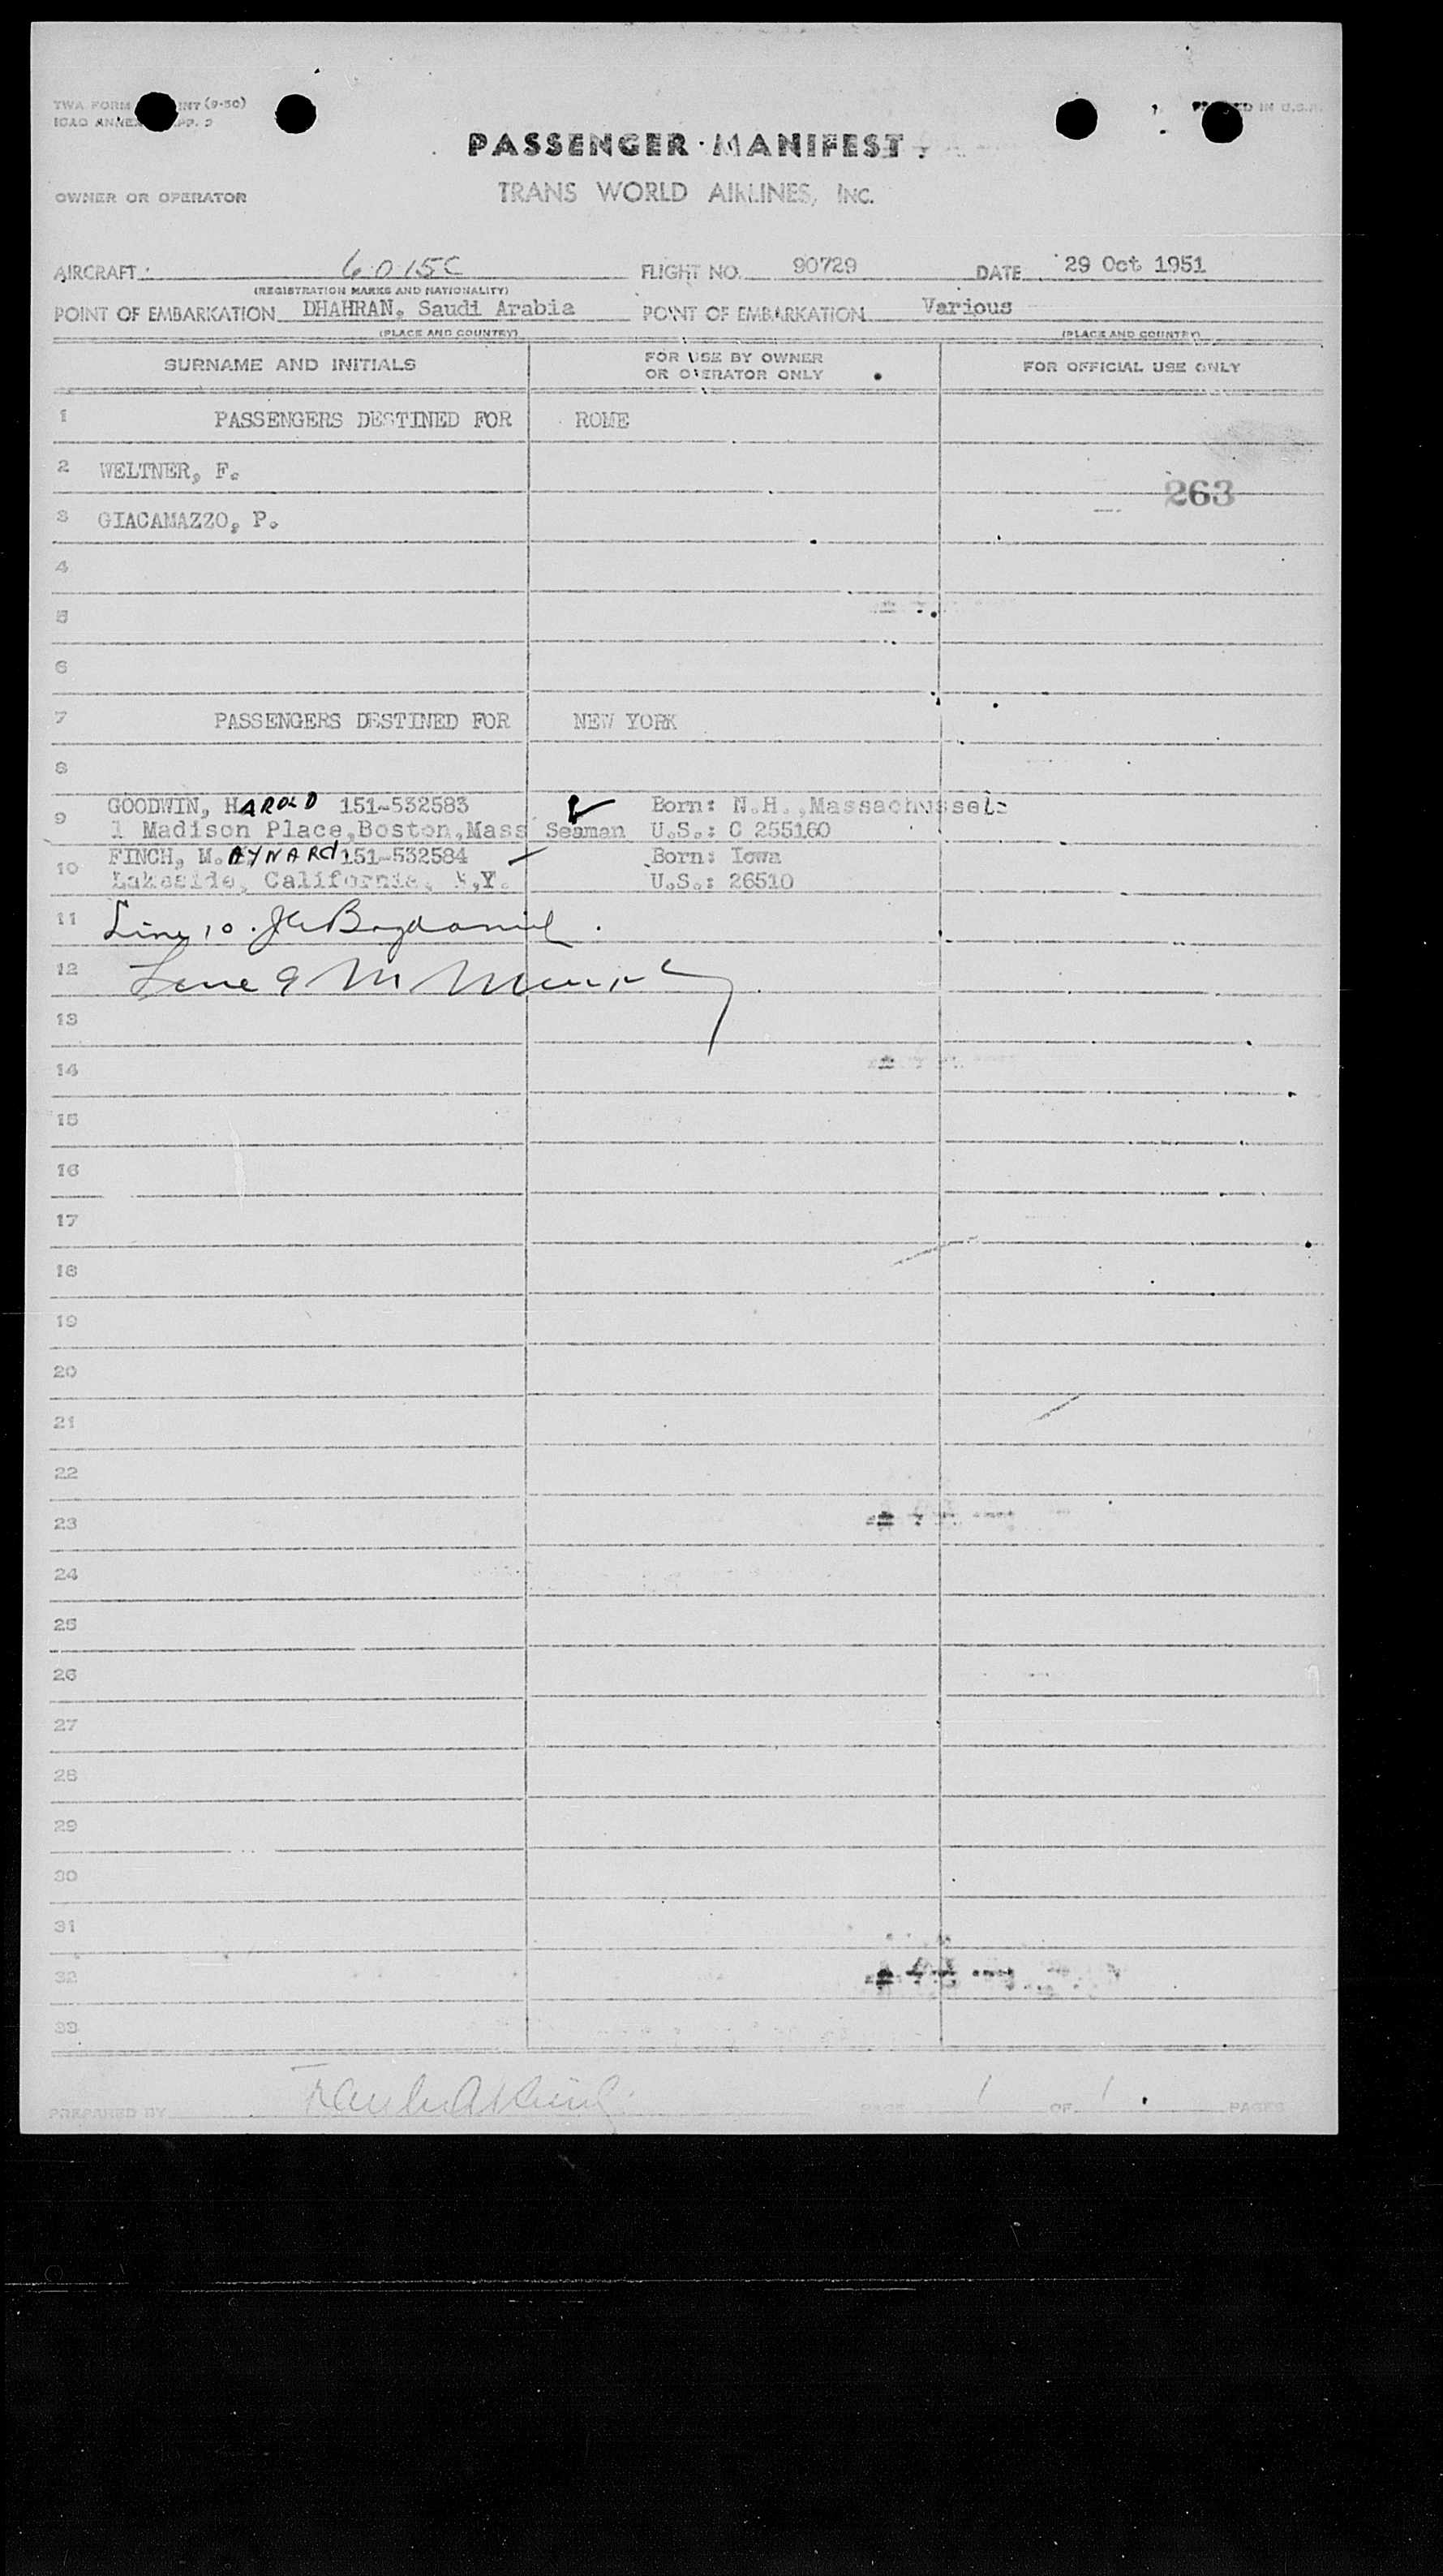 TWA FORM INT (9-50)
ICAO ANNEX APP. 2
PRINTED IN U.S.A.
PASSENGER MANIFEST
OWNER OR OPERATOR TRANS WORLD AIRLINES, INC.
AIRCRAFT 6015C FLIGHT NO. 90729 DATE 29 Oct 1951
(REGISTRATION MARKS AND NATIONALITY)
POINT OF EMBARKATION DHAHRAN, Saudi Arabia POINT OF EMBARKATION Various
(PLACE AND COUNTRY) (PLACE AND COUNTRY)
SURNAME AND INITIALS FOR USE BY OWNER OR OPERATOR ONLY FOR OFFICIAL USE ONLY
1 PASSENGERS DESTINED FOR ROME
2 WELTNER, F.
263
3 GIACAMAZZO, P.
4
5
6
7 PASSENGERS DESTINED FOR NEW YORK
8
9 GOODWIN, HAROLD 151-532583 Born: N.H.,Massachussets
1 Madison Place,Boston,Mass Seaman U.S.: C 255160
10 FINCH, M.AYNARd 151-532584 Born: Iowa
Lakeside, California, N.Y. U.S.: 26510
11 Line 10.
12 Line 9 M
13
14
15
16
17
18
19
20
21
22
23
24
25
26
27
28
29
30
31
32
33
PREPARED BY PAGE 1 OF 1 PAGES